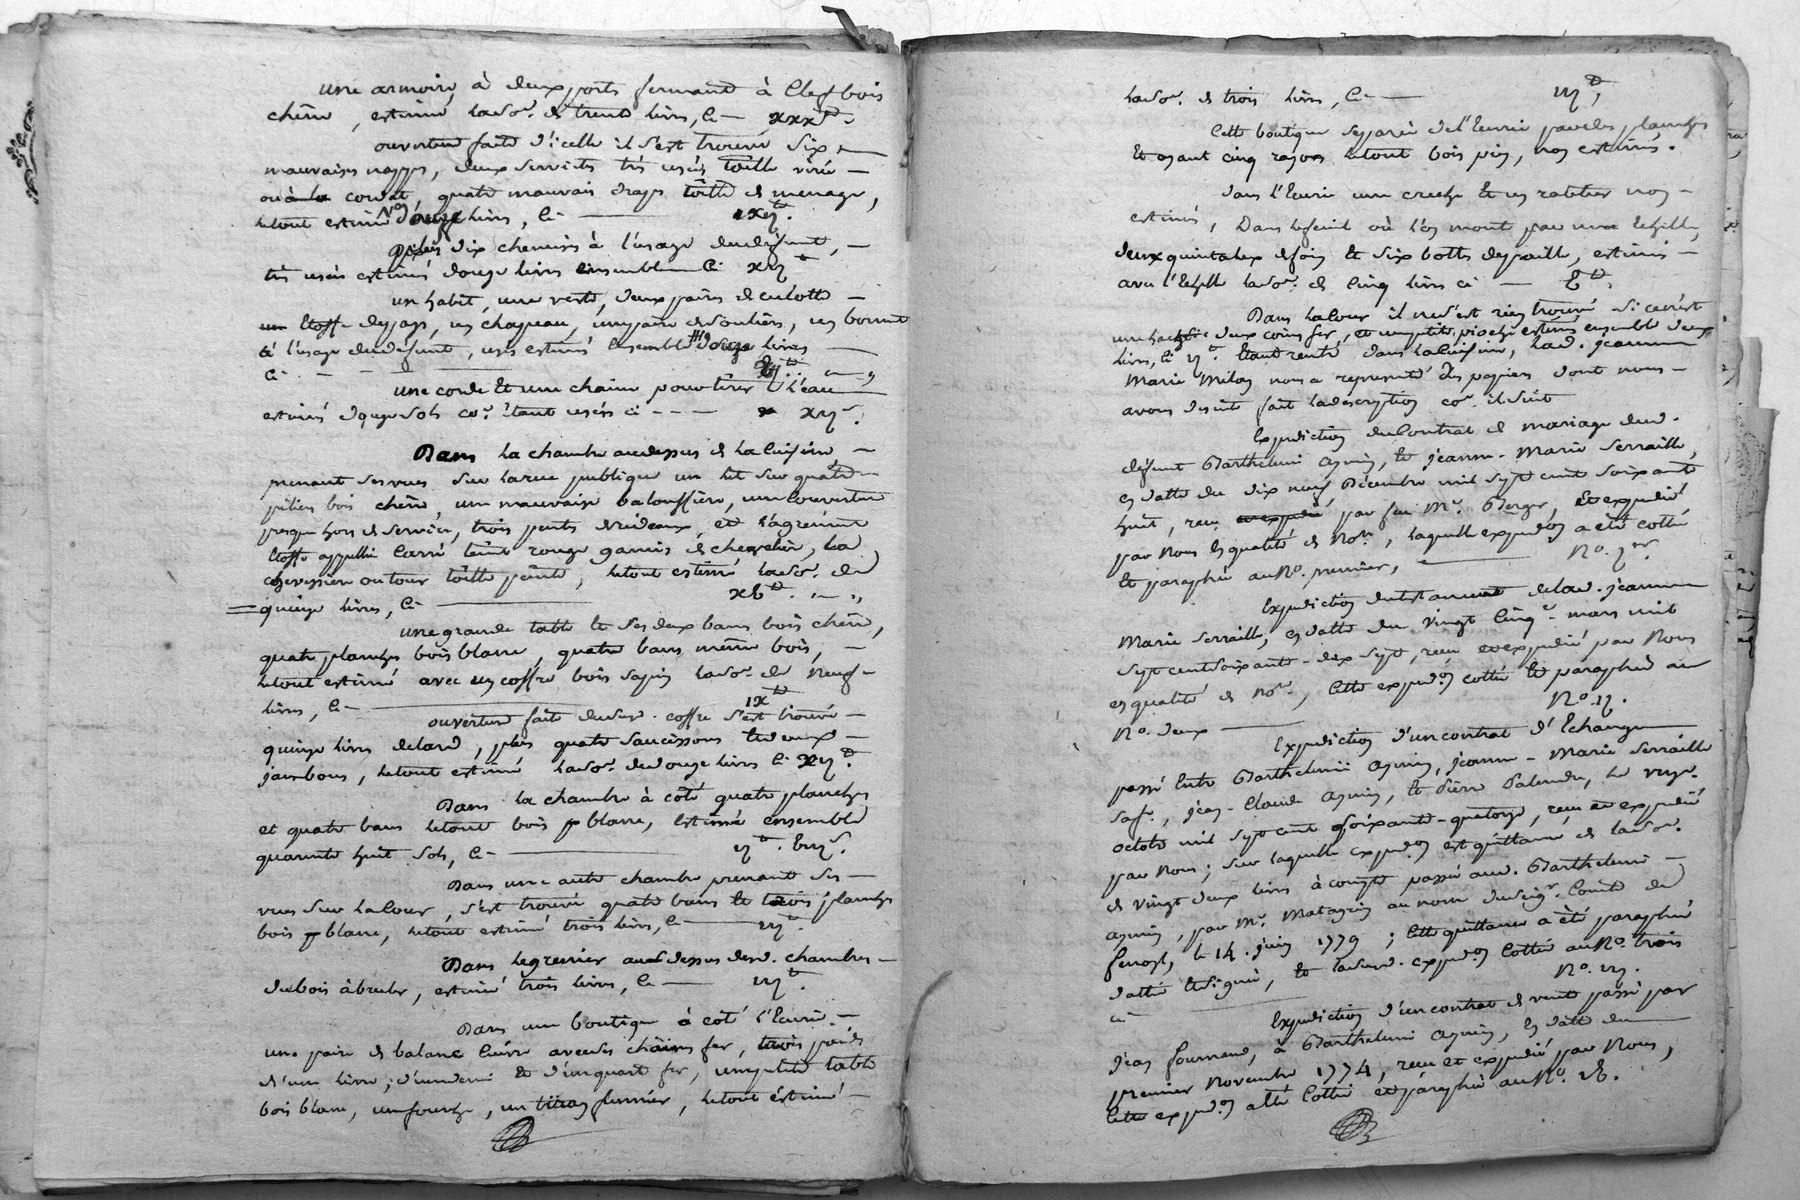 une armoire à deux ports fermant à Clef bois
chêne, estimée la so.e de trente livres, ci — xxx tt.
ouverture faite d'icelle il s'est trouvé Six
mauvaises nappes, deux serviets très usés toille
quatre mauvais draps toille de menage,
le tout estimé douze livres, ci — xij tt.
plus dix chemises à l'usage du défunt,
très usés estimés douze livres ensemble ci xij tt
un habit, une veste, deux paires de culotte
Etoffe de pays, un chapeau, une paire de souliers, un bonnet
à l'usage du défunt, usés estimés Ensemble livres
ci
une corde Et une chaine pour tirer l'eau
estimés douze sols co.e étant usées ci - - - xij s.
Dans la chambre au dessus de la Cuisine
prenant ses vues sur la rue publique un lit sur quatre
piliers bois chêne, un mauvaise balouffière, une Couverture
presque hors de service, trois pents de rideaux, et l'agrément
Etoffe appellée Carré teint rouge garnis de chevelière, la
chevessière autour toille peinte, le tout estimé la so.e de
quinze livres, ci — xv tt. " — "
une grande table Et ses deux bancs bois chêne,
quatre planches bois blanc, quatre bancs même bois,
le tout estimé avec un coffre bois sapin la so.e de Neuf
livres, ci — ix tt
ouverture faite dudit coffre s'est trouvé
quinze livres de lard, plus quatre saucissons et deux
jambons, le tout estimé la so.e de douze livres ci xij tt.
Dans la chambre à côté quatre planches
et quatre bancs le tout bois blanc, Estimé ensemble
quarante huit sols, ci — ij tt. viij s.
Dans une autre chambre prenant ses
vues sur la Cour, s'est trouvé quatre bancs et trois planches
bois blanc, le tout estimé trois livres, ci — iij tt.
Dans le grenier au dessus desd. chambres
du bois à bruler, estimé trois livres, ci — iij tt.
Dans une boutique à côté l'Ecurie
une paire de balance Cuivre avec ses chaines fer, trois poids
d'une livre, d'un demi Et d'un quart fer, une petite table
bois blanc, une fourche, un fumier, le tout éstimé
la so.e de trois livres, ci — iij tt,
Cette boutique separée de l'Ecurie par des planches
Et ayant cinq rayons le tout bois pin, non estimés.
dans l'Ecurie une creche Et un ratelier non
estimés, Dans le fenil où l'on monte par une Echelle,
deux quintaux de foin Et six bottes de paille, estimés
avec l'Echelle la so.e de Cinq livres ci — v tt.
Dans la Cour il ne s'est rien trouvé si ce n'est
une hache deux coins fer, et une petite pioche estimés ensemble deux
livres, ci ij tt. Etant rentré dans la Cuisine, lad. jeanne
Marie Milon nous a representé des papiers dont nous
avons desuite fait la description co.e il suit
Expedition du Contrat de mariage dud.
defunt Barthelemi aynin, Et jeanne-Marie Serraille,
en datte du dix neuf Décembre mil sept cent soixante
huit, recu par feu M.e Berger, Et expedié
par Nous En qualité de No.re, laquelle exped.on a été cottée
Et paraphée au No. premier, — No. 1er.
Expedition du testament de lad. jeanne
Marie Serraille, en datte du vingt Cinq mars mil
sept cent soixante-dix sept, recu et expedié par Nous
en qualité de No.re, Cette exped.on cottée Et paraphée au
No. deux — No. ij.
Expedition d'un contrat d'Echange
passé Entre Barthelemi aynin, jeanne-Marie Serraille
sa fe., jean-Claude aynin, Et Pierre Palandre, le vingt
octobre mil sept cent soixante-quatorze, recu et expedié
par Nous; sur laquelle exped.on est quittance de la so.e
de vingt deux livres à compte passée aud. Barthelemi
aynin, par M.e Matagrin au nom du seig.r Comte de
ferrost, le 14. juin 1779; Cette quittance a été paraphée
datté Et signée, Et lad. exped.on Cottée au No. trois
ci — No. iij.
Expedition d'un contrat de vente passé par
jean fournand, à Barthelemi Aynin, En datte du
premier Novembre 1774, recu et expedié par Nous,
Cette exped.on a été Cottée et paraphée au No. iv.